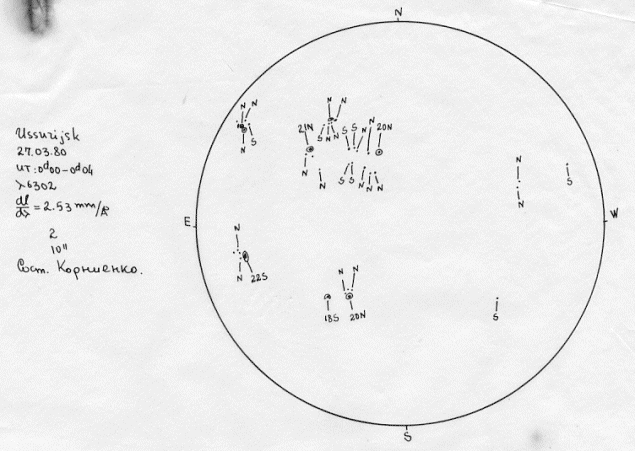 N
Ussurijsk
27.03.80
UT: 0ᵈ00-0ᵈ04
λ6302
dl/dλ = 2.53 mm/Å
2
10"
Сост. Корниенко.
E
W
S
N N
N
N
S
N N
21N
S
N N
S S
N
N
20N
N
N
S S
N N N
N
N
S
N
N
22S
N N
18S
20N
S